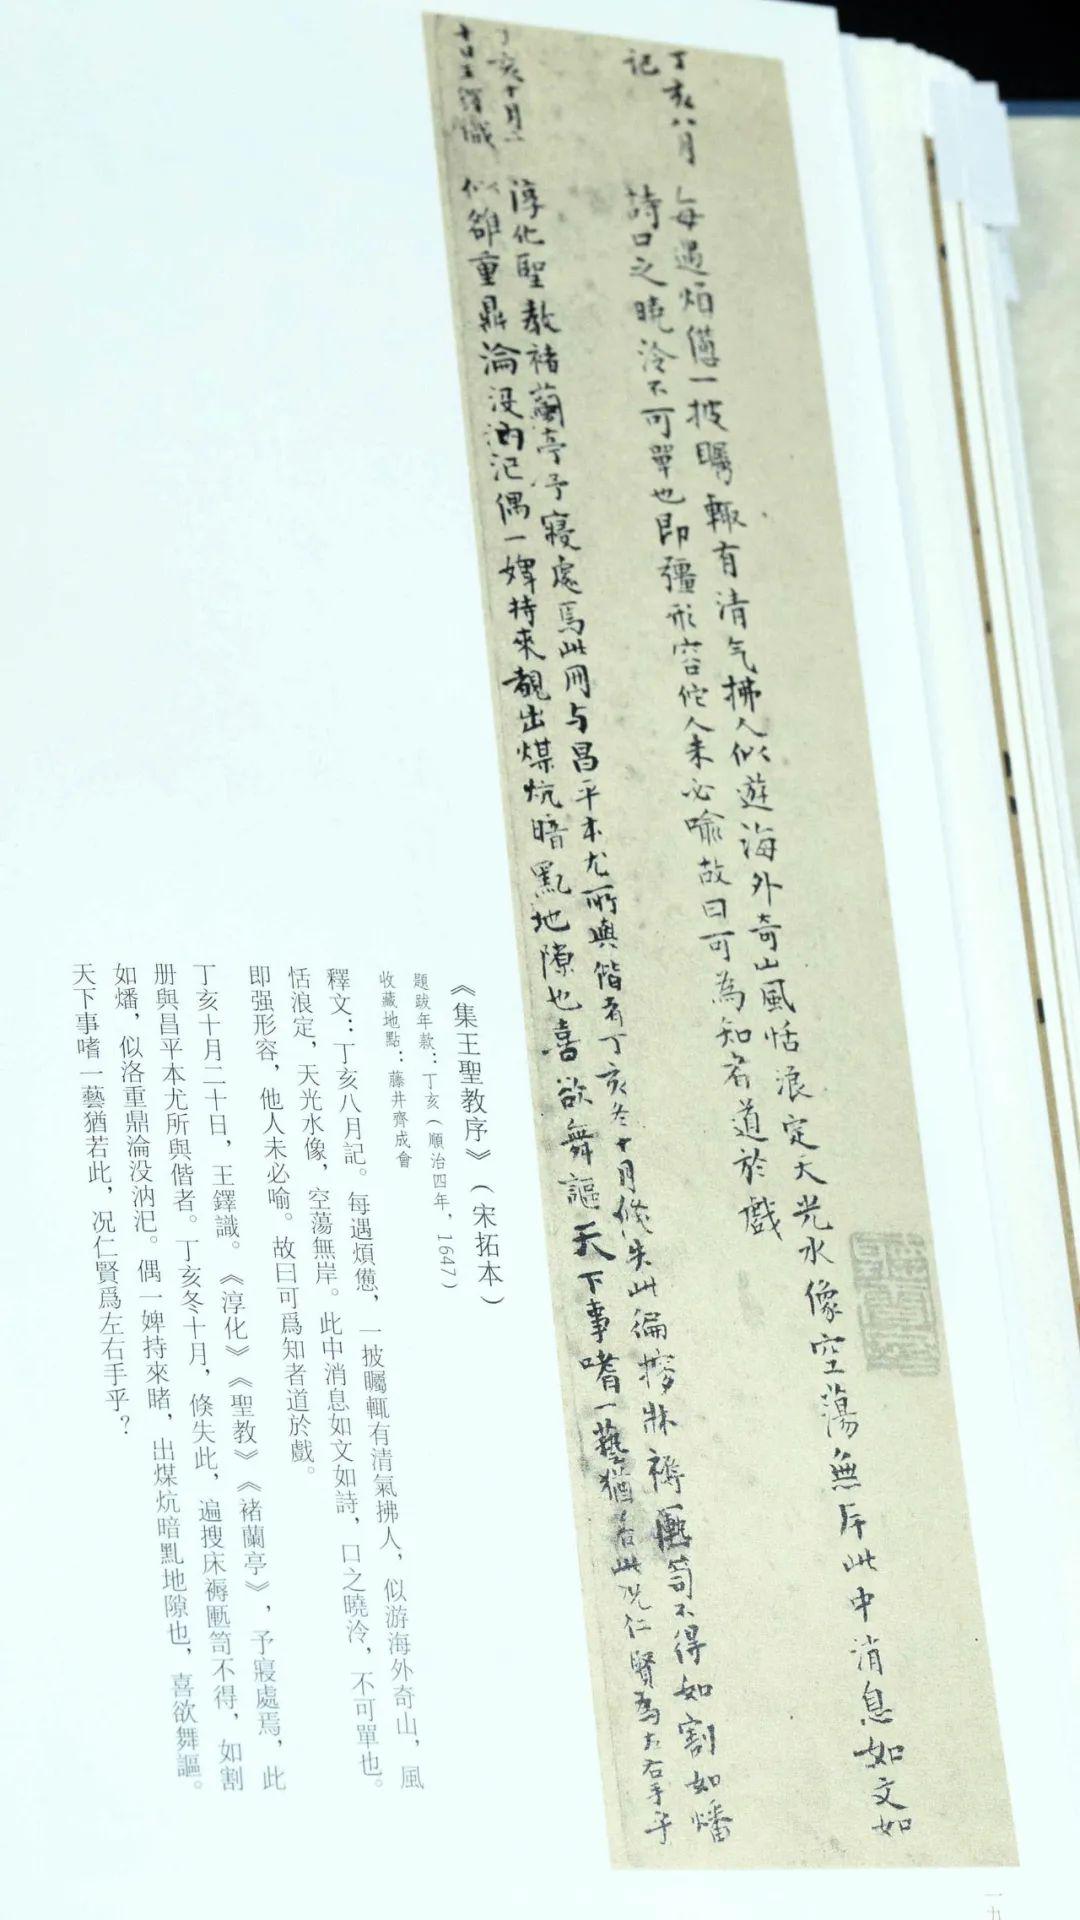 丁亥八月
記
每遇煩僽一披矚輒有清气拂人似遊海外奇山風恬浪定天光水像空蕩無岸此中消息如文如
詩口之曉泠不可單也即彊形容佗人未必喻故曰可為知者道於戲
丁亥十月二
十日王鐸識
淳化聖教褚蘭亭予寢處焉此冊与昌平本尤所與偕者丁亥冬十月倐失此徧搜牀褥匭笥不得如割如燔
似雒重鼎淪沒汭汜偶一婢持來覩出煤炕暗黓地隙也喜欲舞謳天下事嗜一藝猶若此况仁賢為左右手乎
《集王聖教序》（宋拓本）
題跋年款：丁亥（順治四年，1647）
收藏地點：藤井齊成會
釋文：丁亥八月記。每遇煩僽，一披矚輒有清氣拂人，似游海外奇山，風
恬浪定，天光水像，空蕩無岸。此中消息如文如詩，口之曉泠，不可單也。
即强形容，他人未必喻。故曰可爲知者道於戲。
丁亥十月二十日，王鐸識。《淳化》《聖教》《褚蘭亭》，予寢處焉，此
册與昌平本尤所與偕者。丁亥冬十月，倏失此，遍搜床褥匭笥不得，如割
如燔，似洛重鼎淪没汭汜。偶一婢持來睹，出煤炕暗黓地隙也，喜欲舞謳。
天下事嗜一藝猶若此，况仁賢爲左右手乎？